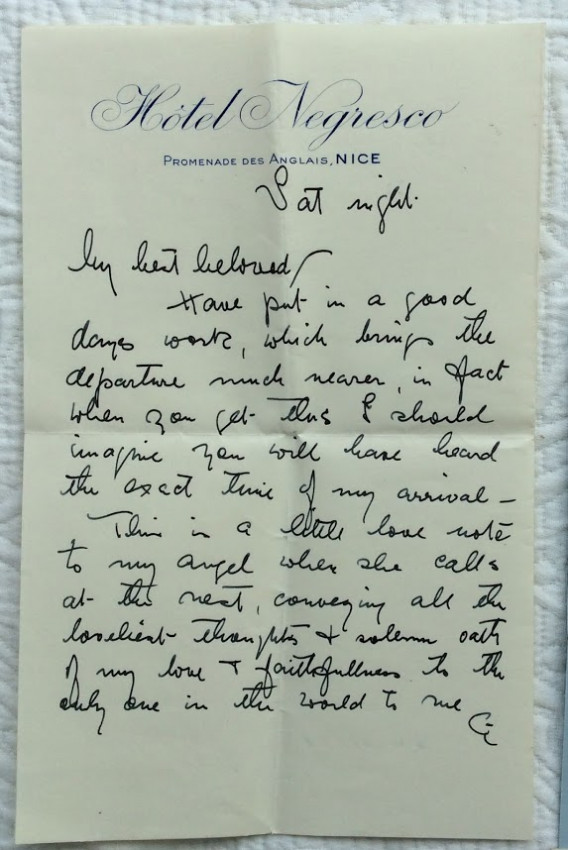 Hôtel Negresco
PROMENADE DES ANGLAIS, NICE
Sat night.
My best beloved/
Have put in a good
days work, which brings the
departure much nearer, in fact
when you get this I should
imagine you will have heard
the exact time of my arrival –
This is a little love note
to my angel when she calls
at the nest, conveying all the
loveliest thoughts & solemn oath
of my love & faithfullness to the
only one in the world to me